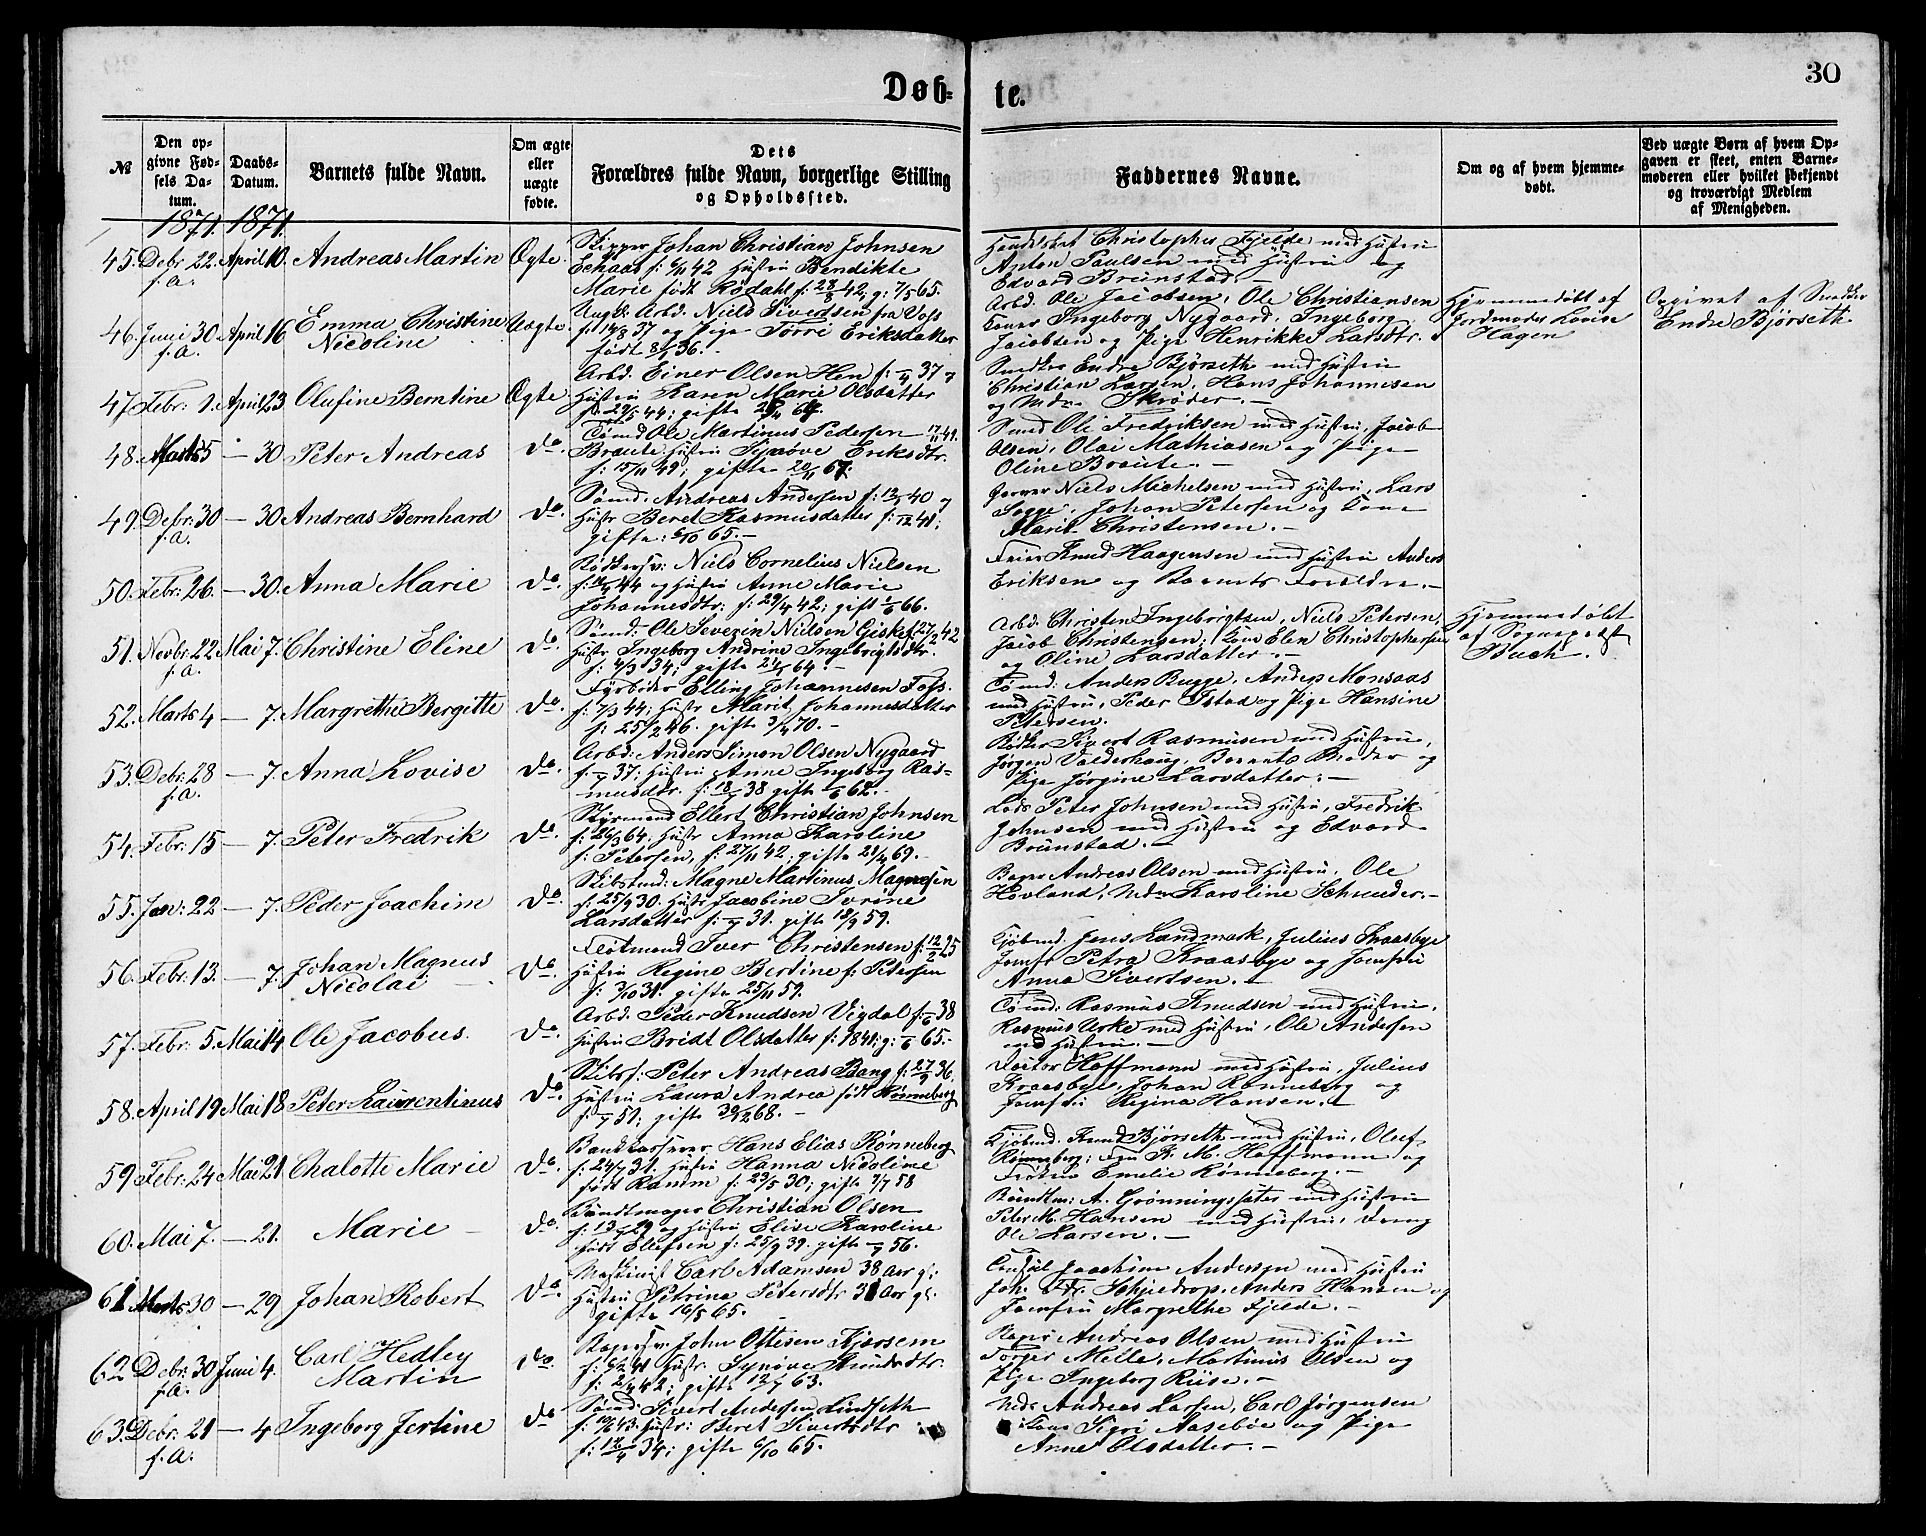 Døb-
te.
30
№
Den op-
givne Fød-
sels Da-
tum.
Daabs-
Datum.
Barnets fulde Navn.
Om ægte
eller
uægte
fødte.
Dets
Forældres fulde Navn, borgerlige Stilling
og Opholdssted.
Faddernes Navne.
Om og af hvem hjemme-
døbt.
Ved uægte Børn af hvem Op-
gaven er skeet, enten Barne-
moderen eller hvilket bekjendt
og troværdigt Medlem
af Menigheden.
1871. 1871.
45. Debr. 22. April 10. Andreas Martin Ægte.
f. a.
Skipper Johan Christian Johnsen
Schaas f: 6/11 42 Hustru Bendikte
Marie født Rødahl f: 28/8 42, g: 7/5 65.
Christopher Fjelde med Hustru
Anton Paulsen med Hustru og
Edvard Brunstad.
46. Juni 30 April 16 Emma Christine Uægte.
f. a. Nicoline
Ungk. Arb. Niels Sivertsen fra Vols
f. 14/8 37 og Pige Torri Eriksdatter
født 8/1 36.
Arbd. Ole Jacobsen, Ole Christiansen
Kone Ingeborg Nygaard, Ingeborg
Jacobsen og Pige Henrikke Larsdtr.
Hjemmedøbt af
Jordmoder Lovise
Hagen
Opgivet af Snedker
Endre Bjørseth
47. Febr: 1. April 23 Olufine Berntine Ægte
Arbd. Einer Olsen Hen f: 4 37 og
Hustru Karen Marie Olsdatter
44; gifte
Snedker Endre Bjørseth med Hustru
Christian Larsen, Hans Johannesen
og Skrøder.
48. Marts 5 — 30 Peter Andreas do.
Tømd Ole Martinus Pedersen 17/11 49.
Braute Hustru Synøve Eriksdtr.
f: 15/11 49; gifte 20/11 67.
Smed Ole Fredriksen med Hustru, Jacob
Olsen, Olai Mathiasen og Pige
Oline Braute.
49. Debr: 30 — 30 Andreas Bernhard do.
f. a.
Tømd. Andreas Andersen f: 12 40 og
Hustr Beret Rasmusdatter f: 12 41;
gifte: 6/10 65.
Garver Niels Michelsen med Hustru, Lars
Sogge, Johan Petersen og Kone
Marit Christensen.
50. Febr: 26. — 30. Anna Marie do.
Niels Cornelius Nielsen
44 og Hustru Anne Marie
Johannesdtr: f: 29/4 42; gift 1/6 66.
Feier Knud Haagensen med Hustru Anders
Eriksen og Barnets Forældre.
51. Novbr. 22 Mai 7. Christine Eline do
f. a.
Tømd: Ole Severin Nielsen Giske f. 27/2 42
Hustr Ingeborg Andrine Ingebrigtsdtr.
f: 4/3 34; gifte 24 64.
Arbd. Christen Ingebrigtsen, Niels Petersen,
Jacob Christensen, Kone Elen Christophersen
og Oline Larsdatter.
Hjemmedøbt
af Sognepræst
Buch.
52. Marts 4 — 7. Margrethe Bergitte do.
Fyrbøder Elling Johannesen Foss.
f: 7/3 44; Hustr Marit Johannesdatter
f: 25/2 46. gifte 3/4 70.
Tømd: Anders Bugge, Anders Monsaas
med Hustru, Peder Istad og Pige Hansine
Petersen.
53. Debr: 28 — 7. Anna Lovise do.
f. a.
Arbd: Anders Simon Olsen Nygaard
f: 37; Hustru Anne Ingeborg Ras-
musdtr. f: 18 38 gifte 6 62.
Bødker Sivert Rasmusen med Hustru,
Jørgen Valderhaug, Barnets Moder og
Pige Jørgine Larsdatter.
54. Febr: 15 — 7. Peter Fredrik do.
Styrmand Ellert Christian Johnsen
f: 26/3 64, Hustr Anna Karoline
f: Petersen, f: 27/11 42, gifte 28/4 69.
Lods Peter Johnsen med Hustru, Fredrik
Johnsen med Hustru og Edvard
Brunstad.
55. Jan: 22 — 7. Peder Joachim do.
Skibstmd: Magne Martinus Magnesen
f: 25/9 30. Hustr Jacobine Ivrine
Larsdatter f: 31. gifte 18/9 59.
Bager Andreas Olsen med Hustru, Ole
Hovland, Karoline Schrøder.
56. Febr: 13. — 7. Johan Magnus do.
Nicolai
Fløtmand Iver Christensen f: 12/2 25
Hustru Regine Bertine f: Petersen
f: 3/10 31. gifte 25/11 59.
Kjøbmd. Jens Landmark, Julius Kraasbye
Jomfr Petra Kraasbye og Jomfru
Anna Sivertsen.
57. Febr: 5. Mai 14 Ole Jacobus. do.
Arbd. Peder Knudsen Vigdal f: 6 38
Hustru Bridt Olsdatter f: 1841; g: 6 65.
Tømd. Rasmus Knudsen med Hustru.
Rasmus Urke med Hustru, Ole Andersen
med Hustru.
58. April 19 Mai 18 Peter Laurentinus do.
Skibsf: Peter Andreas Bang f: 27/9 36,
Hustru Laura Andrea født Rønneberg
f: 51; gifte 30/12 68.
Doctor Hoffmann med Hustru, Julius
Kraasbye, Johan Rønneberg og
Jomfru Regina Hansen.
59. Febr: 24 Mai 21 Chalotte Marie do.
Bankkasserer Hans Elias Rønneberg
f: 24/7 31. Hustru Hanna Nicoline
født Ramm f: 23/5 30; gifte 9/7 58
Kjøbmd. Knud Bjørseth med Hustru, Oluf
Rønneberg; Fru K. M. Hoffmann og
Frøken Emelie Rønneberg.
60. Mai 7. — 21. Marie do.
Bundtmager Christian Olsen
f: 13 29 og Hustru Elise Karoline
født Ellefsen f: 25/9 39. gifte 9 56.
Bundtm: A. Grønningsæter med Hustru
Peter M. Hansen med Hustru, Dreng
Ole Larsen.
61 Marts 30 — 29 Johan Robert do.
Maskinist Carl Adamsen 38 Aar gl:
Hustru Petrina Petersdtr 31 Aar gl.
gifte 16/5 65.
Consul Joachim Andersen med Hustru
Joh. Fr. Schjedrop, Anders Hansen og
Jomfru Margrethe Fjelde.
62 Debr: 30 Juni 4. Carl Hedley do.
f. a. Martin
John Ottesen Kjorsem
f: 6/2 41 Hustr. Synøve Knudsdtr.
f: 2/4 42; gifte 12 63.
Bager Andreas Olsen med Hustru
Torger Melle, Martinus Olsen og
Pige Ingeborg Riise.
63. Debr: 21 — 4 Ingeborg Jertine do
f. a:
Tømd: Sivert Andersen Lindseth
f: 19/6 43: Hustr: Beret Sivertsdtr
f: 18/4 34; gifte 6/10 65.
Andreas Larsen, Carl Jørgensen
Kone Sigri Aasebøe og Pige
Anne Olsdatter.